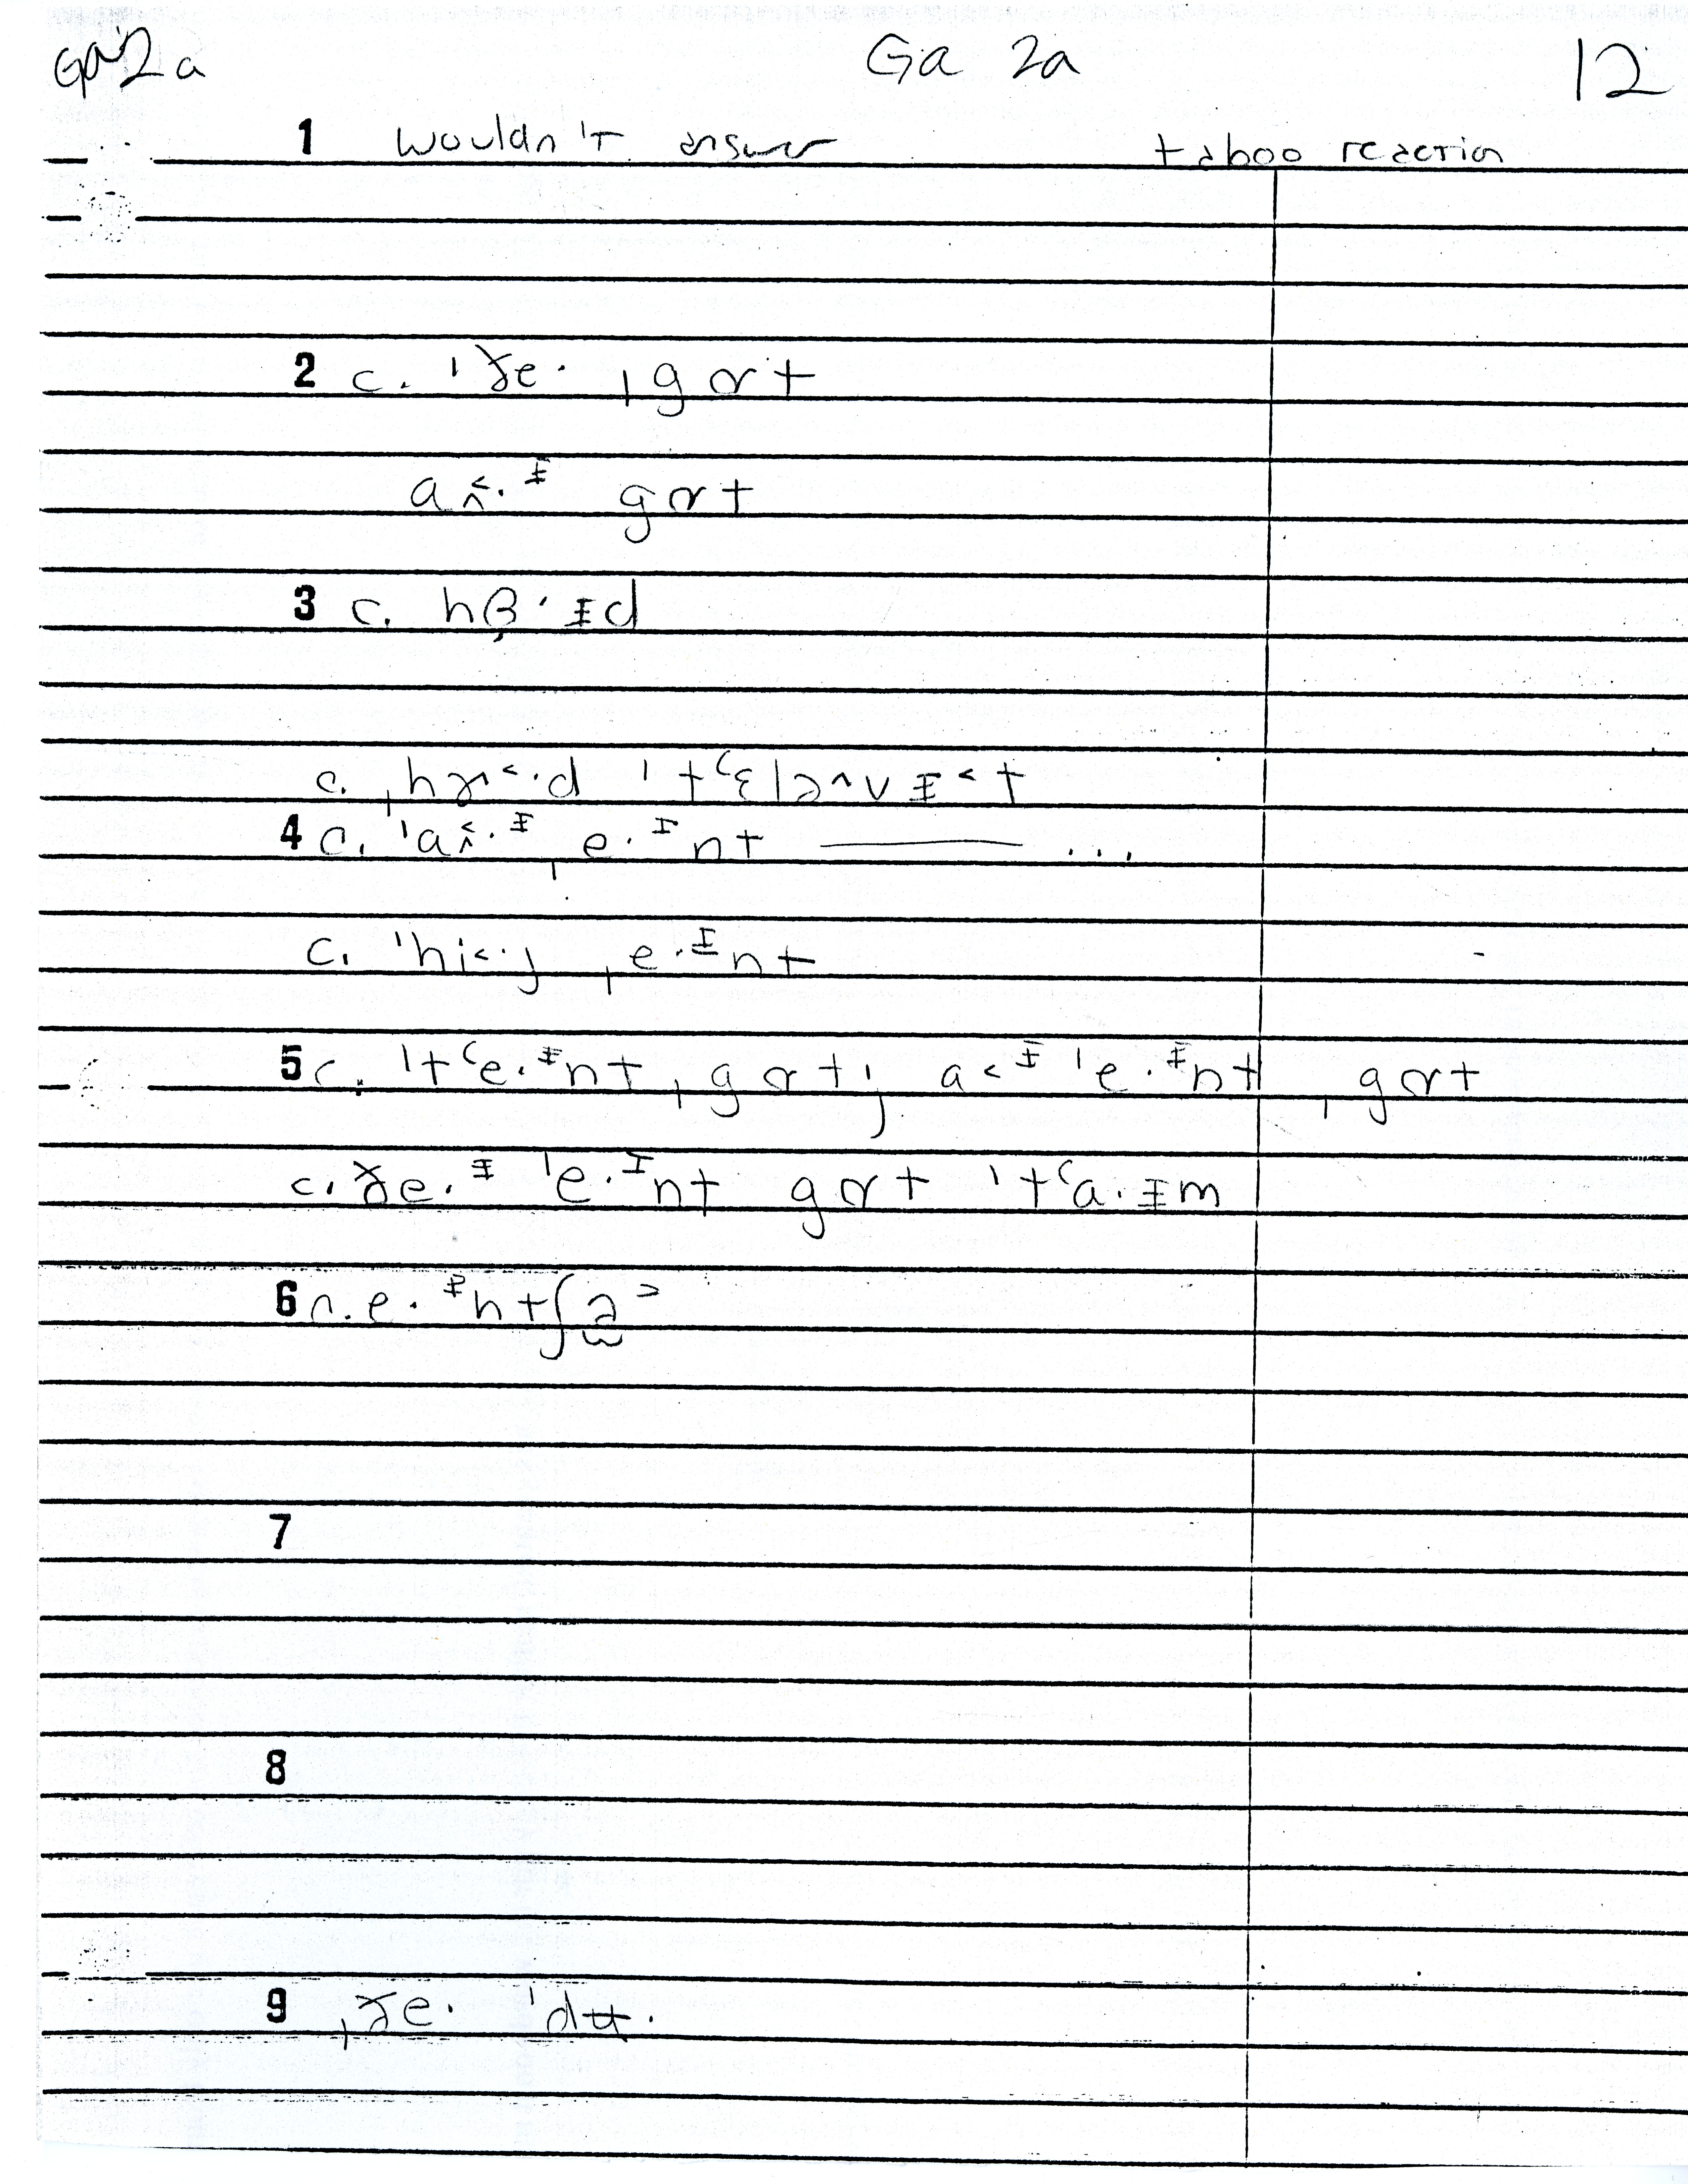 Ga 2a Ga 2a 12
1 wouldn't answer taboo reaction
2 c. ˈðe· ˌgɑt
aʌ˂·ᵻ gɑt
3 c. hɞ·ᵻd
c. ˌhɚ˂·d ˈtʿɛlə^vᵻ˂t
4 c. ˈaʌ˂·ᵻ ˌe·ᴵnt ——— ...
c. ˈhi˂·j ˌe·ᴵnt
5 c. ˈtʿe·ᵻnt ˌgɑt; a˂ᵻ ˈe·ᵻnt ˌgɑt
c. ðe·ᵻ ˈe·ᴵnt gɑt ˈtʿa·ᵻm
6 c. e·ᵻntʃə̫˃
7
8
9 ˌðe· ˈdʉ·